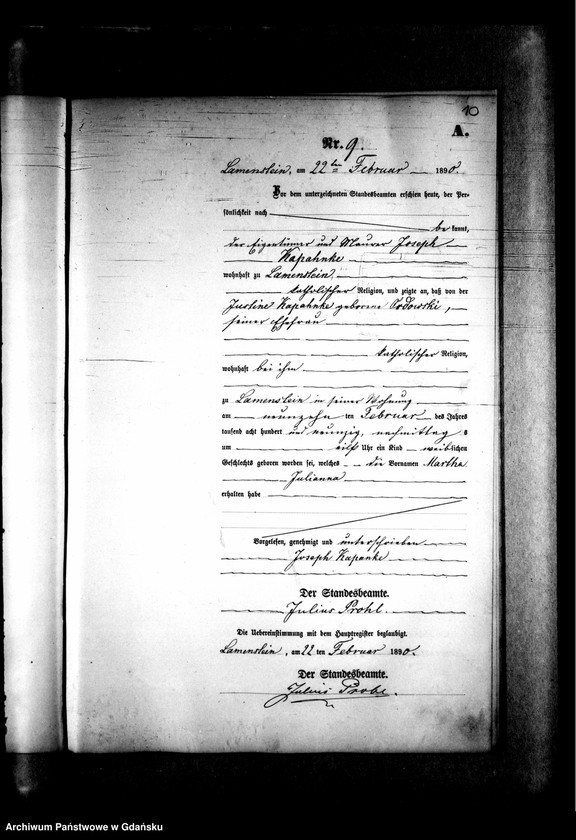 10
A.
Nr. 9.
Lamenstein, am 22ten Februar 1890.
Vor dem unterzeichneten Standesbeamten erschien heute, der Per-
sönlichkeit nach
bekannt,
der Eigenthümer und Maurer Joseph
Kapahnke
wohnhaft zu Lamenstein
katholischer Religion, und zeigte an, daß von der
Justine Kapahnke geborene
seiner Ehefrau
katholischer Religion,
wohnhaft bei ihm
zu Lamenstein in seiner Wohnung
am neunzehn ten Februar des Jahres
tausend acht hundert und neunzig, nachmittag s
um eilf Uhr ein Kind weiblichen
Geschlechts geboren worden sei, welches die Vornamen Martha
Julianna
erhalten habe
Vorgelesen, genehmigt und unterschrieben
Joseph Kapanke
Der Standesbeamte.
Julius
Die Uebereinstimmung mit dem Hauptregister beglaubigt.
Lamenstein, am 22 ten Februar 1890.
Der Standesbeamte.
Julius
Archiwum Państwowe w Gdańsku